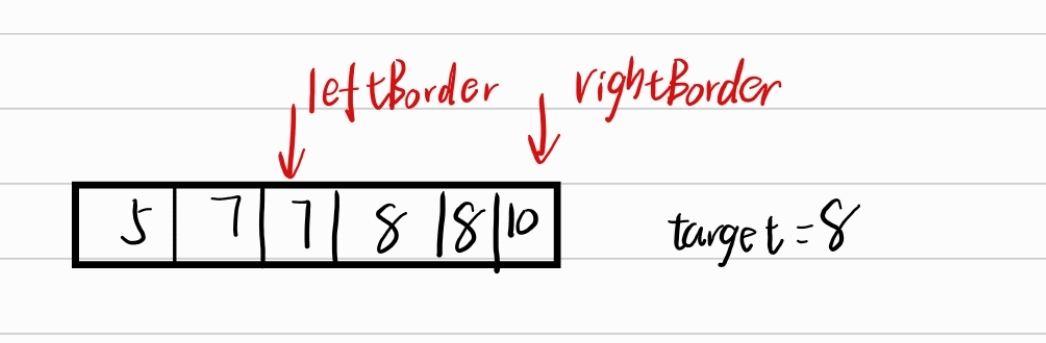 leftBorder rightBorder
5 7 7 8 8 10 target = 8